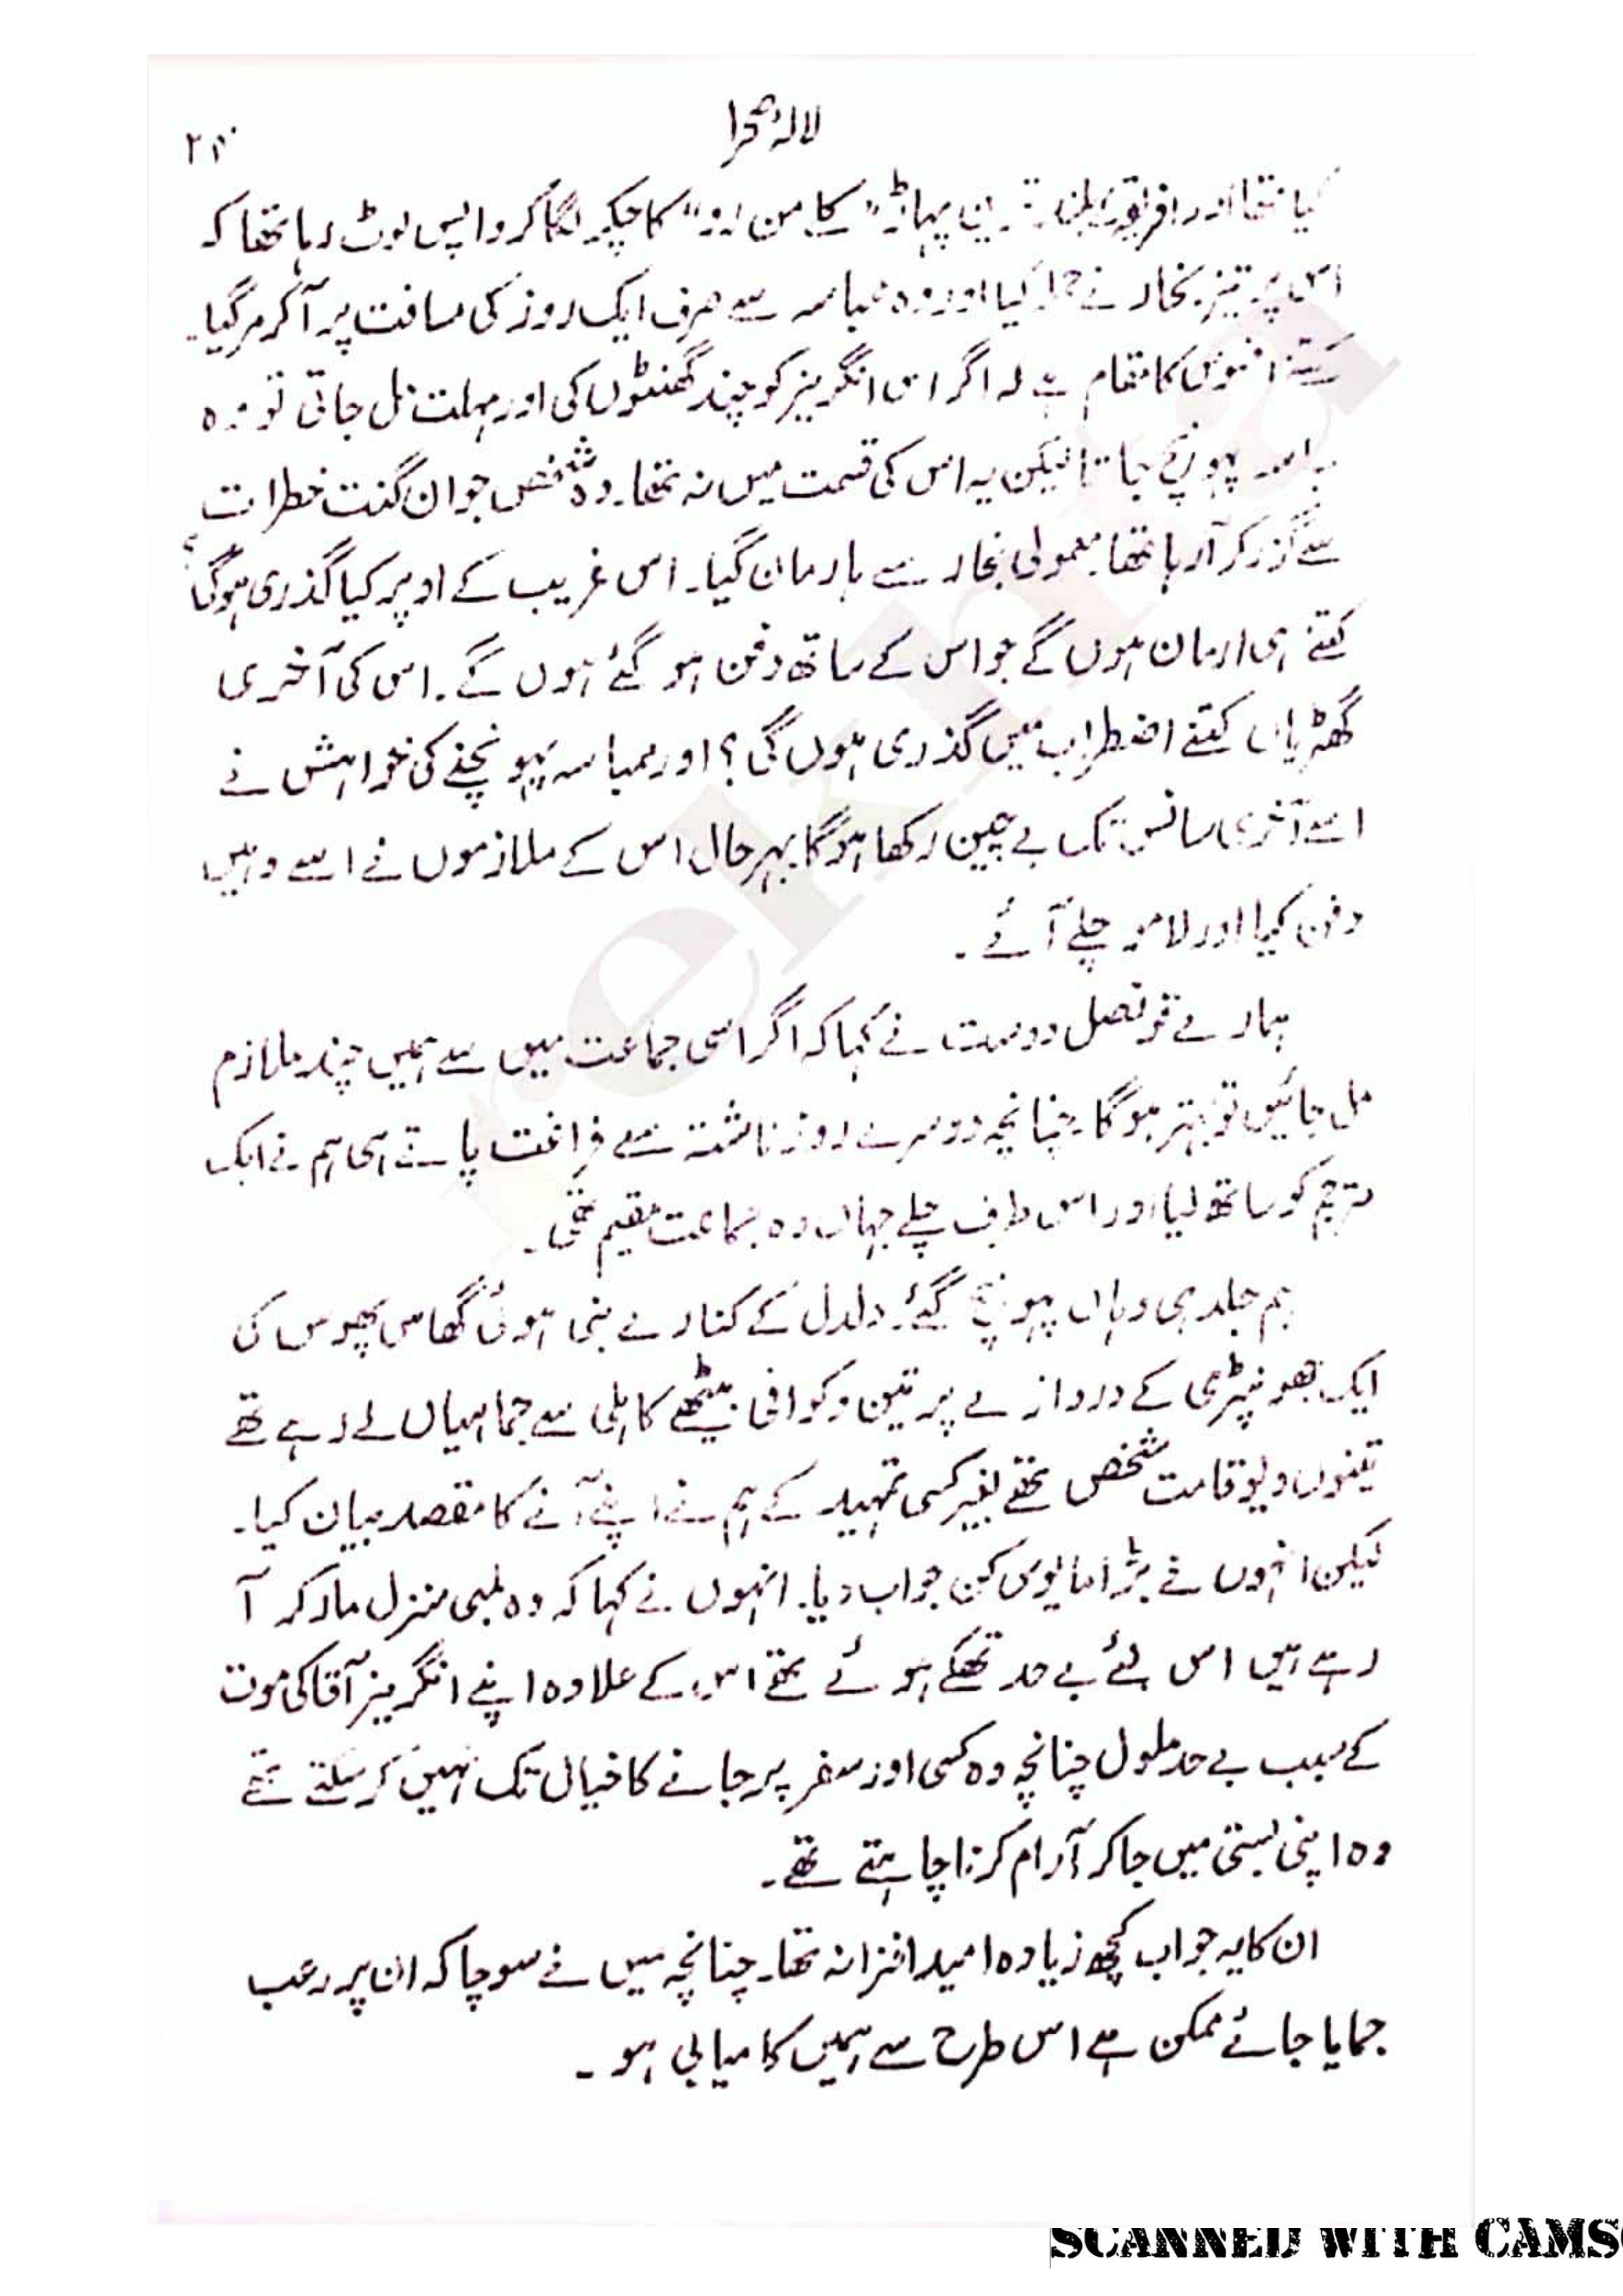 لالۂ صحرا
کیا تھا اور افریقہ بلند ترین پہاڑ "کلے من رو" کا چکر لگا کر واپس لوٹ رہا تھا کہ
اس پر تیز بخار نے حملہ کیا اور وہ ممباسہ سے صرف ایک روز کی مسافت پر آ کر مر گیا۔
کتنے افسوس کا مقام ہے کہ اگر اس انگریز کو چند گھنٹوں کی اور مہلت مل جاتی تو وہ
پہونچ جاتا لیکن یہ اس کی قسمت میں نہ تھا۔ وہ شخص جو ان گنت خطرات
سے گزر کر آ رہا تھا۔ معمولی بخار سے ہار مان گیا۔ اس غریب کے اوپر کیا گذری ہو گی؟
کتنے ہی ارمان ہوں گے جو اس کے ساتھ دفن ہو گئے ہوں گے۔ اس کی آخری
گھڑیاں کتنے اضطراب میں گذری ہوں گی؟ اور ممباسہ پہونچنے کی خواہش نے
اسے آخری سانس تک بے چین رکھا ہو گا بہر حال اس کے ملازموں نے اسے وہیں
دفن کیا اور لامو چلے آئے۔
ہمارے قونصل دوست نے کہا کہ اگر اسی جماعت میں سے ہمیں چند ملازم
مل جائیں تو بہتر ہو گا۔ چنانچہ دوسرے روز ناشتہ سے فراغت پاتے ہی ہم نے ایک
مترجم کو ساتھ لیا اور اس طرف چلے جہاں وہ جماعت مقیم تھی۔
ہم جلد ہی وہاں پہونچ گئے۔ دلدل کے کنارے بنی ہوئی گھاس پھوس کی
ایک جھونپڑی کے دروازے پر تین وکوافی بیٹھے کاہلی سے جماہیاں لے رہے تھے
تینوں دیوقامت شخص تھے بغیر کسی تمہید کے ہم نے اپنے آنے کا مقصد بیان کیا۔
لیکن انہوں نے بڑا مایوس کن جواب دیا۔ انہوں نے کہا کہ وہ لمبی منزل مار کر آ
رہے ہیں اس لئے بے حد تھکے ہوئے تھے اس کے علاوہ اپنے انگریز آقا کی موت
کے سبب بے حد ملول چنانچہ وہ کسی اور سفر پر جانے کا خیال تک نہیں کر سکتے تھے
وہ اپنی بستی میں جا کر آرام کرنا چاہتے تھے۔
ان کا یہ جواب کچھ زیادہ امید افزا نہ تھا۔ چنانچہ میں نے سوچا کہ ان پر رعب
جمایا جائے ممکن ہے اس طرح سے ہمیں کامیابی ہو۔
SCANNED WITH CAMS